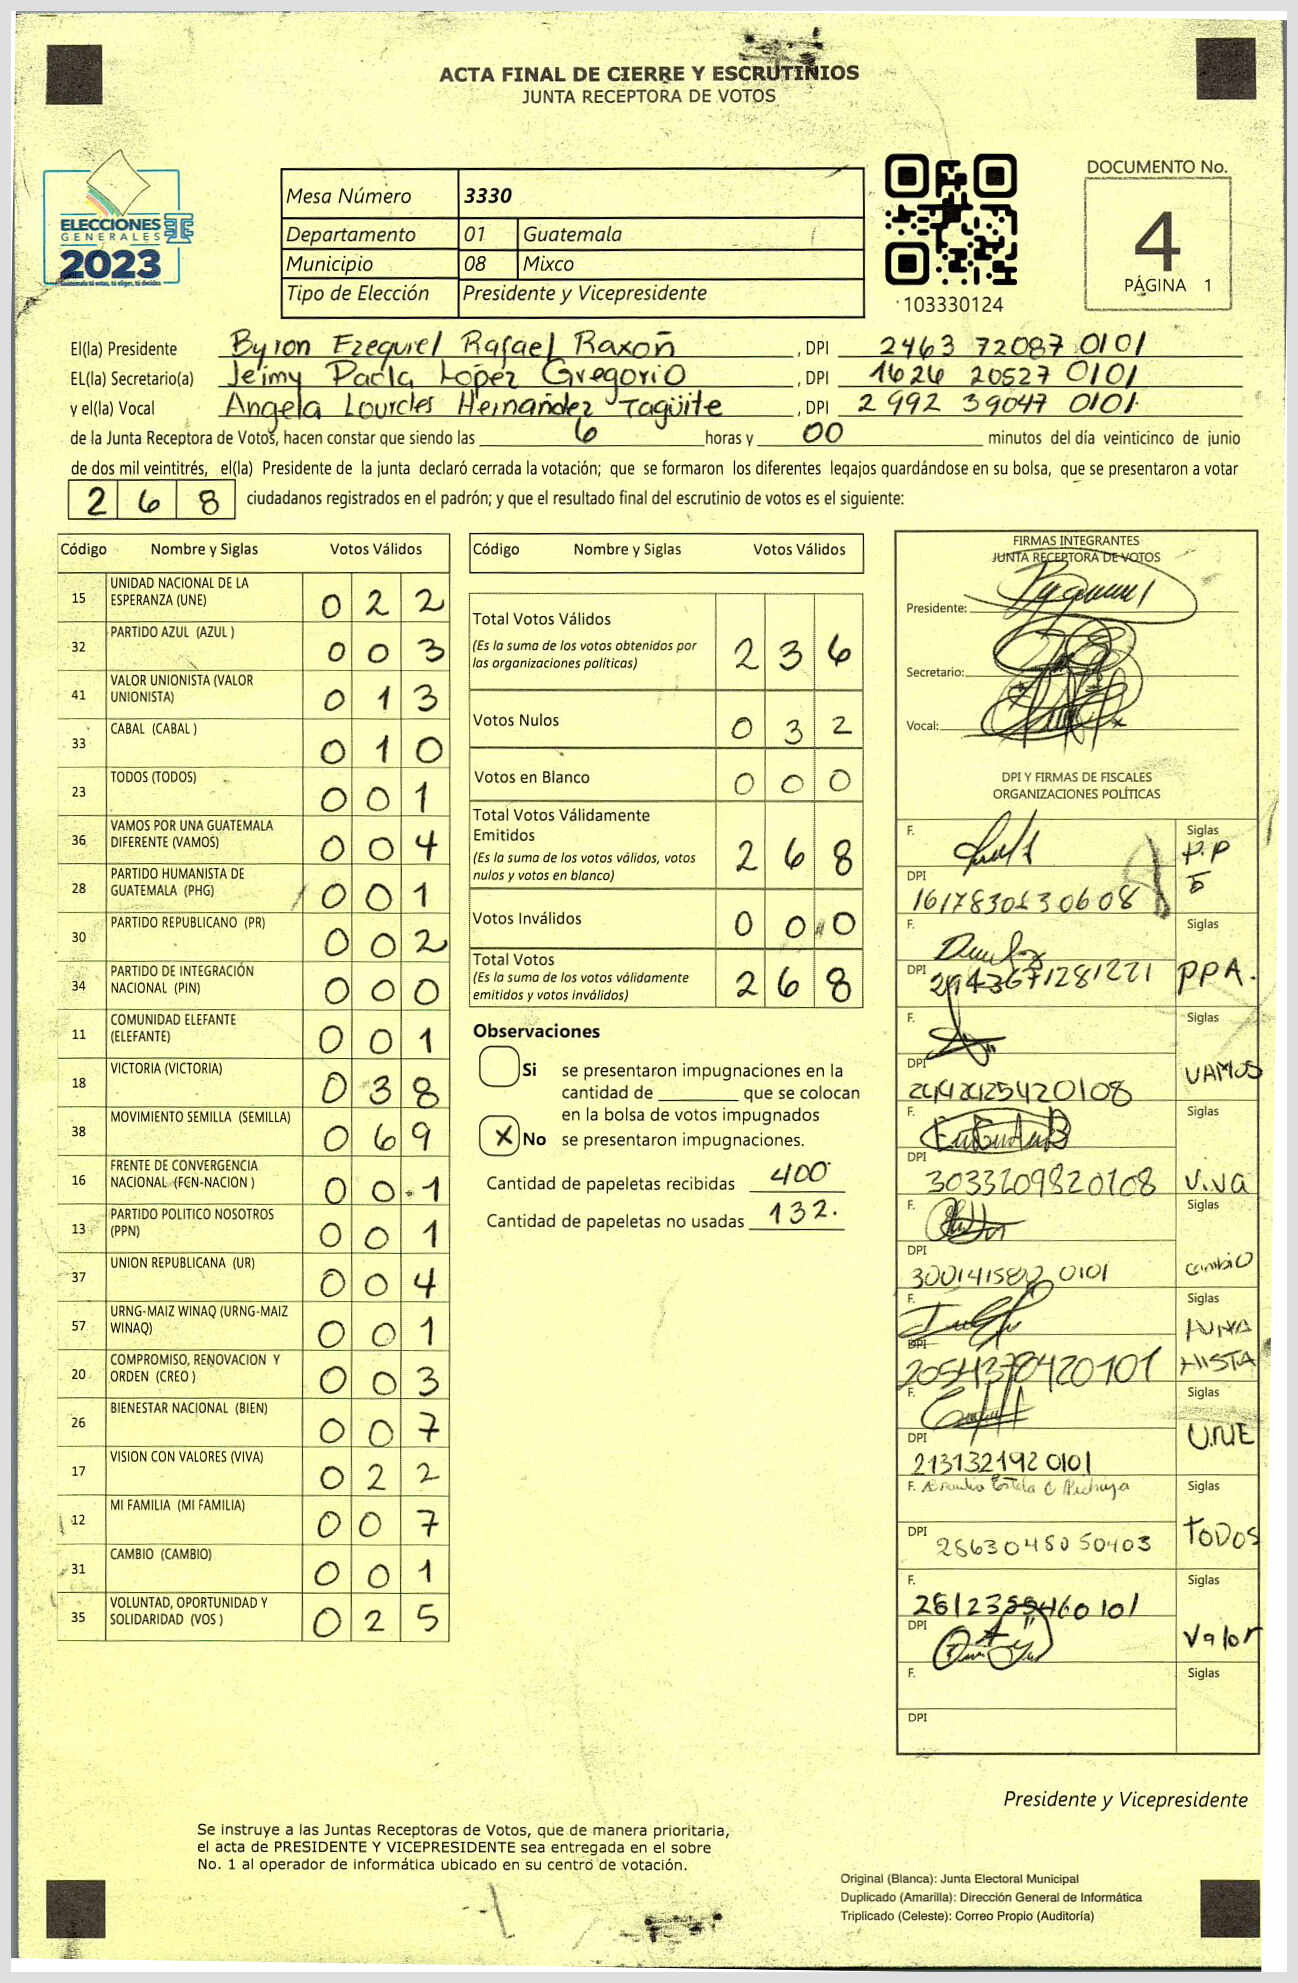 ACTA FINAL DE CIERRE Y ESCRUTINIOS
JUNTA RECEPTORA DE VOTOS
ELECCIONES
GENERALES
2023
Guatemala tú votas, tú eliges, tú decides
Mesa Número 3330
Departamento 01 Guatemala
Municipio 08 Mixco
Tipo de Elección Presidente y Vicepresidente
103330124
DOCUMENTO No.
4
PÁGINA 1
El(la) Presidente Byron Ezequiel Rafael Raxón , DPI 2463 72087 0101
EL(la) Secretario(a) Jeimy Paola López Gregorio , DPI 1626 20527 0101
y el(la) Vocal Angela Lourdes Hernández Tagüite , DPI 2992 39047 0101
de la Junta Receptora de Votos, hacen constar que siendo las 6 horas y 00 minutos del día veinticinco de junio
de dos mil veintitrés, el(la) Presidente de la junta declaró cerrada la votación; que se formaron los diferentes legajos guardándose en su bolsa, que se presentaron a votar
268 ciudadanos registrados en el padrón; y que el resultado final del escrutinio de votos es el siguiente:
Código Nombre y Siglas Votos Válidos
15 UNIDAD NACIONAL DE LA ESPERANZA (UNE) 022
32 PARTIDO AZUL (AZUL ) 003
41 VALOR UNIONISTA (VALOR UNIONISTA) 013
33 CABAL (CABAL ) 010
23 TODOS (TODOS) 001
36 VAMOS POR UNA GUATEMALA DIFERENTE (VAMOS) 004
28 PARTIDO HUMANISTA DE GUATEMALA (PHG) 001
30 PARTIDO REPUBLICANO (PR) 002
34 PARTIDO DE INTEGRACIÓN NACIONAL (PIN) 000
11 COMUNIDAD ELEFANTE (ELEFANTE) 001
18 VICTORIA (VICTORIA) 038
38 MOVIMIENTO SEMILLA (SEMILLA) 069
16 FRENTE DE CONVERGENCIA NACIONAL (FCN-NACION ) 001
13 PARTIDO POLITICO NOSOTROS (PPN) 001
37 UNION REPUBLICANA (UR) 004
57 URNG-MAIZ WINAQ (URNG-MAIZ WINAQ) 001
20 COMPROMISO, RENOVACION Y ORDEN (CREO ) 003
26 BIENESTAR NACIONAL (BIEN) 007
17 VISION CON VALORES (VIVA) 022
12 MI FAMILIA (MI FAMILIA) 007
31 CAMBIO (CAMBIO) 001
35 VOLUNTAD, OPORTUNIDAD Y SOLIDARIDAD (VOS ) 025
Código Nombre y Siglas Votos Válidos
Total Votos Válidos
(Es la suma de los votos obtenidos por las organizaciones políticas) 236
Votos Nulos 032
Votos en Blanco 000
Total Votos Válidamente Emitidos
(Es la suma de los votos válidos, votos nulos y votos en blanco) 268
Votos Inválidos 000
Total Votos
(Es la suma de los votos válidamente emitidos y votos inválidos) 268
Observaciones
Si se presentaron impugnaciones en la
cantidad de ________ que se colocan
en la bolsa de votos impugnados
X No se presentaron impugnaciones.
Cantidad de papeletas recibidas 400
Cantidad de papeletas no usadas 132.
FIRMAS INTEGRANTES
JUNTA RECEPTORA DE VOTOS
Presidente:
Secretario:
Vocal:
DPI Y FIRMAS DE FISCALES
ORGANIZACIONES POLÍTICAS
F. Siglas
DPI
F. Siglas
DPI 2943671281221 PPA.
F. Siglas
DPI VAMOS
F. Siglas
DPI
3033209820108 V.va
F. Siglas
DPI cambio
F. Siglas
DPI
2054378420101
F. Siglas
DPI U.N.E
2131321920101
F. Siglas
DPI 2863048050403 TODOS
F. Siglas
DPI Valor
F. Siglas
DPI
Presidente y Vicepresidente
Se instruye a las Juntas Receptoras de Votos, que de manera prioritaria,
el acta de PRESIDENTE Y VICEPRESIDENTE sea entregada en el sobre
No. 1 al operador de informática ubicado en su centro de votación.
Original (Blanca): Junta Electoral Municipal
Duplicado (Amarilla): Dirección General de Informática
Triplicado (Celeste): Correo Propio (Auditoría)